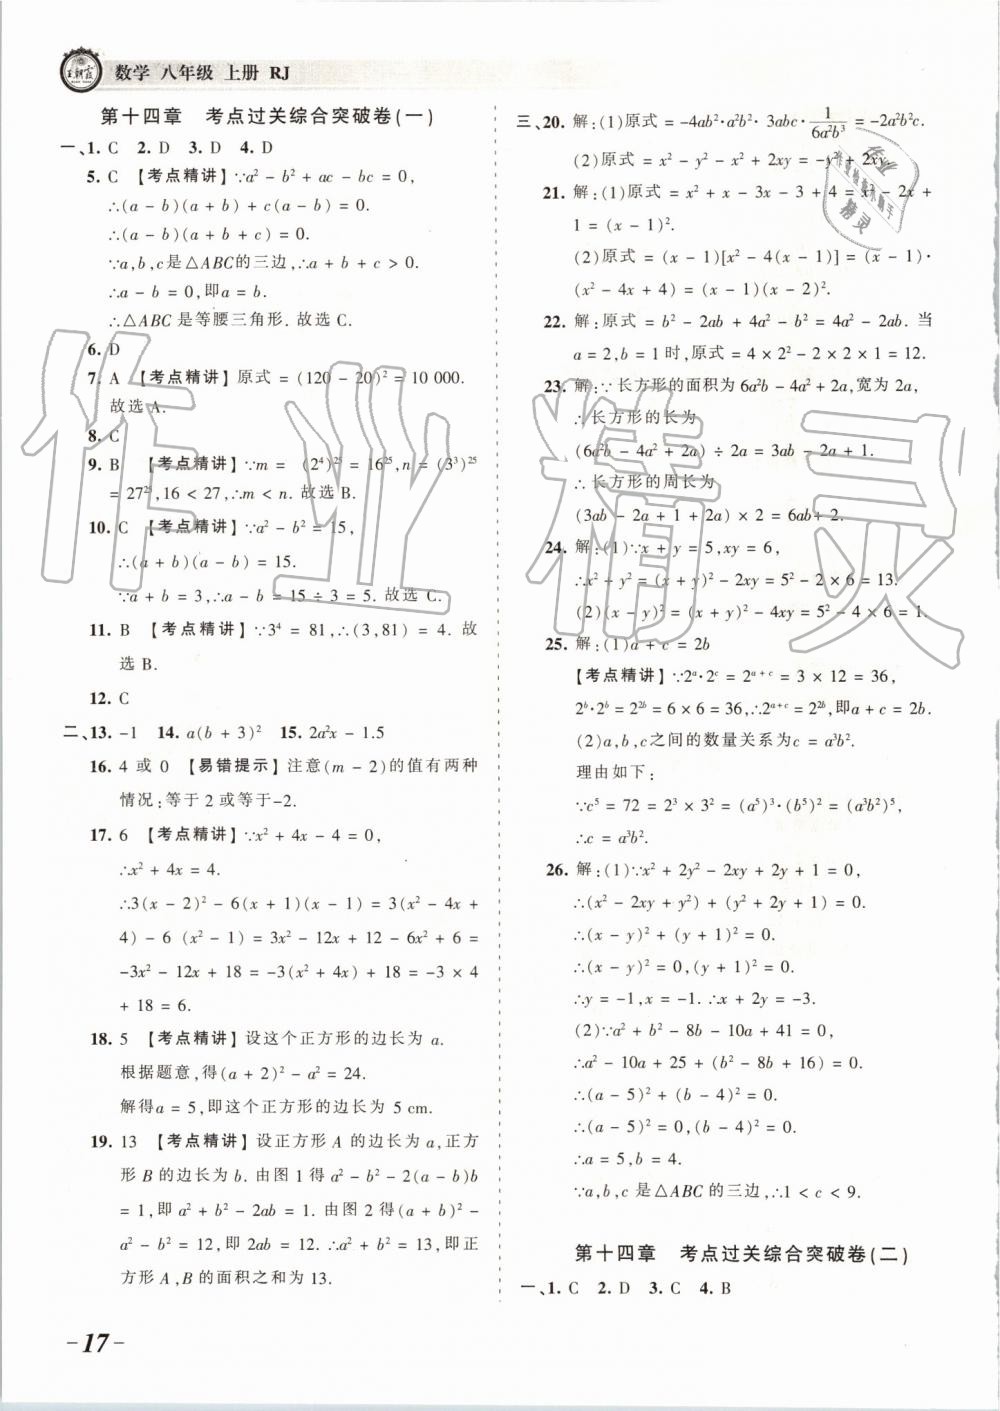 王朝霞
数学 八年级 上册 RJ
第十四章 考点过关综合突破卷(一)
一、1. C 2. D 3. D 4. D
5. C 【考点精讲】∵a² − b² + ac − bc = 0,
∴(a − b)(a + b) + c(a − b) = 0.
∴(a − b)(a + b + c) = 0.
∵a,b,c是△ABC的三边,∴a + b + c > 0.
∴a − b = 0,即a = b.
∴△ABC 是等腰三角形. 故选 C.
6. D
7. A 【考点精讲】原式 = (120 − 20)² = 10 000.
故选 A.
8. C
9. B 【考点精讲】∵m = (2⁴)²⁵ = 16²⁵,n = (3³)²⁵
= 27²⁵,16 < 27,∴m < n. 故选 B.
10. C 【考点精讲】∵a² − b² = 15,
∴(a + b)(a − b) = 15.
∵a + b = 3,∴a − b = 15 ÷ 3 = 5. 故选 C.
11. B 【考点精讲】∵3⁴ = 81,∴(3,81) = 4. 故
选 B.
12. C
二、13. −1 14. a(b + 3)² 15. 2a²x − 1.5
16. 4 或 0 【易错提示】注意(m − 2)的值有两种
情况:等于 2 或等于−2.
17. 6 【考点精讲】∵x² + 4x − 4 = 0,
∴x² + 4x = 4.
∴3(x − 2)² − 6(x + 1)(x − 1) = 3(x² − 4x +
4) − 6 (x² − 1) = 3x² − 12x + 12 − 6x² + 6 =
−3x² − 12x + 18 = −3(x² + 4x) + 18 = −3 × 4
+ 18 = 6.
18. 5 【考点精讲】设这个正方形的边长为 a.
根据题意,得(a + 2)² − a² = 24.
解得a = 5,即这个正方形的边长为 5 cm.
19. 13 【考点精讲】设正方形 A 的边长为 a,正方
形 B 的边长为 b. 由图 1 得 a² − b² − 2(a − b)b
= 1,即 a² + b² − 2ab = 1. 由图 2 得(a + b)² −
a² − b² = 12,即 2ab = 12,∴a² + b² = 13,即正
方形 A,B 的面积之和为 13.
三、20. 解:(1)原式 = −4ab²·a²b²· 3abc· 1/6a²b³ = −2a²b²c.
(2)原式 = x² − y² − x² + 2xy = −y² + 2xy.
21. 解:(1)原式 = x² + x − 3x − 3 + 4 = x² − 2x +
1 = (x − 1)².
(2)原式 = (x − 1)[x² − 4(x − 1)] = (x − 1)·
(x² − 4x + 4) = (x − 1)(x − 2)².
22. 解:原式 = b² − 2ab + 4a² − b² = 4a² − 2ab. 当
a = 2,b = 1 时,原式 = 4 × 2² − 2 × 2 × 1 = 12.
23. 解:∵长方形的面积为 6a²b − 4a² + 2a,宽为 2a,
∴长方形的长为
(6a²b − 4a² + 2a) ÷ 2a = 3ab − 2a + 1.
∴长方形的周长为
(3ab − 2a + 1 + 2a) × 2 = 6ab + 2.
24. 解:(1)∵x + y = 5,xy = 6,
∴x² + y² = (x + y)² − 2xy = 5² − 2 × 6 = 13.
(2)(x − y)² = (x + y)² − 4xy = 5² − 4 × 6 = 1.
25. 解:(1)a + c = 2b
【考点精讲】∵2ᵃ·2ᶜ = 2ᵃ⁺ᶜ = 3 × 12 = 36,
2ᵇ·2ᵇ = 2²ᵇ = 6 × 6 = 36,∴2ᵃ⁺ᶜ = 2²ᵇ,即a + c = 2b.
(2)a,b,c之间的数量关系为c = a³b².
理由如下:
∵c⁵ = 72 = 2³ × 3² = (a⁵)³·(b⁵)² = (a³b²)⁵,
∴c = a³b².
26. 解:(1)∵x² + 2y² − 2xy + 2y + 1 = 0,
∴(x² − 2xy + y²) + (y² + 2y + 1) = 0.
∴(x − y)² + (y + 1)² = 0.
∴(x − y)² = 0,(y + 1)² = 0.
∴y = −1,x = −1. ∴x + 2y = −3.
(2)∵a² + b² − 8b − 10a + 41 = 0,
∴a² − 10a + 25 + (b² − 8b + 16) = 0.
∴(a − 5)² + (b − 4)² = 0.
∴(a − 5)² = 0,(b − 4)² = 0.
∴a = 5,b = 4.
∵a,b,c 是△ABC 的三边,∴1 < c < 9.
第十四章 考点过关综合突破卷(二)
一、1. C 2. D 3. C 4. B
− 17 −
作业精灵
作业
精灵